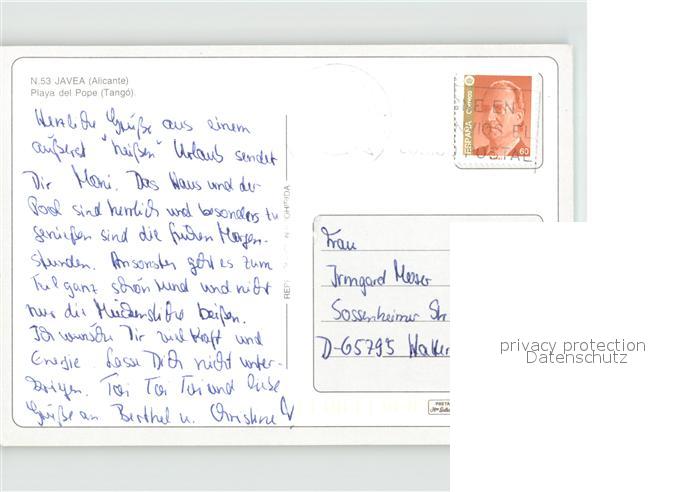 N.53 JAVEA (Alicante)
Playa del Pope (Tangó).
Herzliche Grüße aus einem
äußerst "heißen" Urlaub sendet
Dir Moni. Das Haus und der
Pool sind herrlich und besonders zu
genießen sind die frühen Morgen-
stunden. Ansonsten geht es zum
Teil ganz schön rund und nicht
nur die Mückenstiche beißen.
Ich wünsche Dir viel Kraft und
Energie. Lasse Dich nicht unter-
kriegen. Toi Toi Toi und liebe
Grüße an Berthel u. Christine
ESPAÑA
Correos
60
Frau
Irmgard Moser
Sossenheimer Str
D-65795 Hatter
privacy protection
Datenschutz